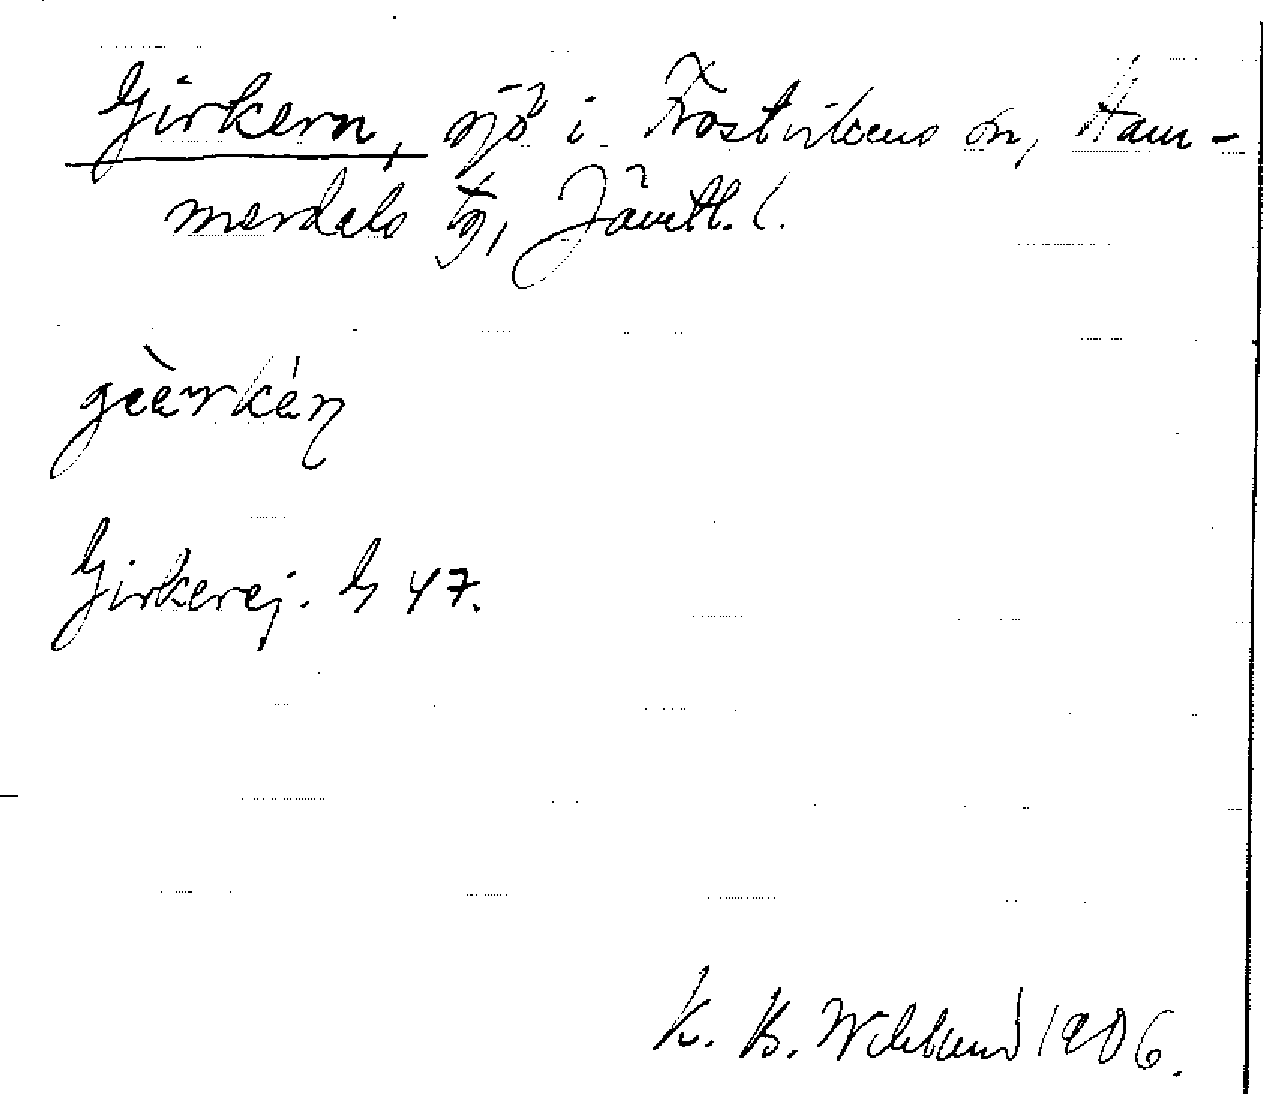 Girkern, sjö i Frostvikens sn, Ham-
merdals tg, Jämtl. l.
gèàrkén
Girkerej. G 47.
K. B. Wiklund 1906.